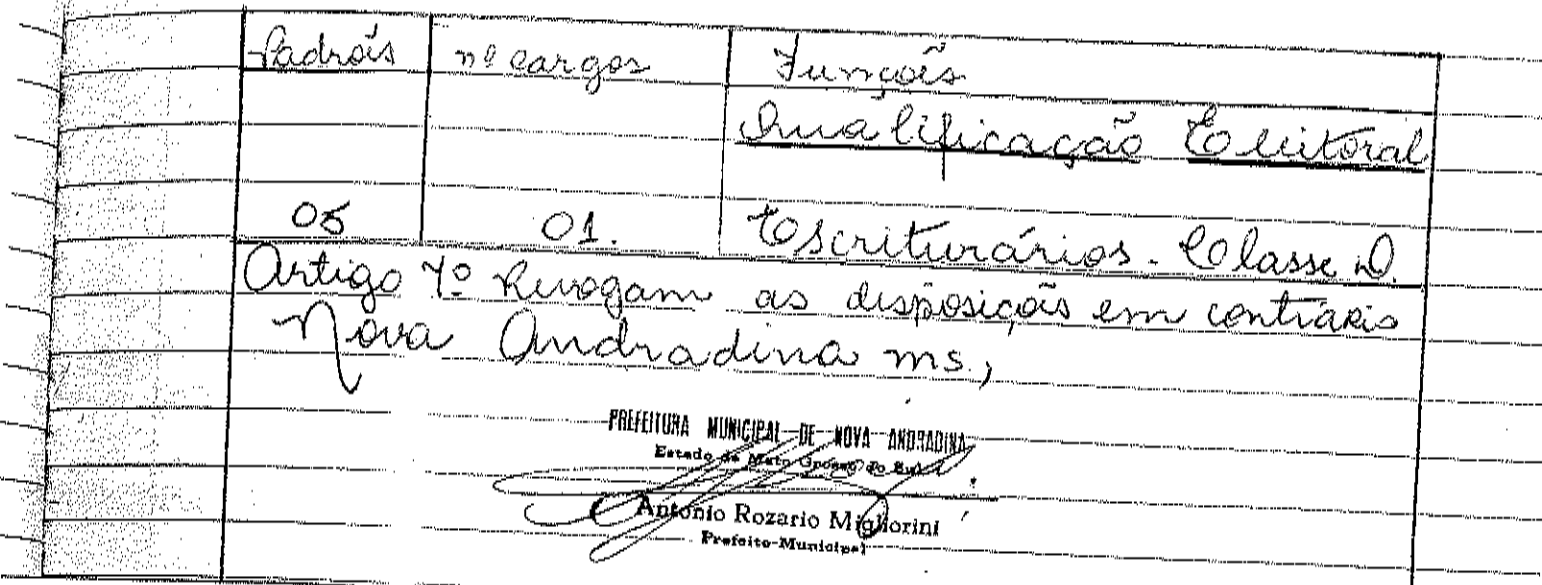 Padrois nº cargos Funçois
Qualificação Eleitoral
05 01. Escriturários. Classe D.
Artigo 7º Revogam as disposiçois em contrário
Nova Andradina ms.,
PREFEITURA MUNICIPAL DE NOVA ANDRADINA
Estado de Mato Grosso do Sul
Antonio Rozario Migliorini
Prefeito-Municipal